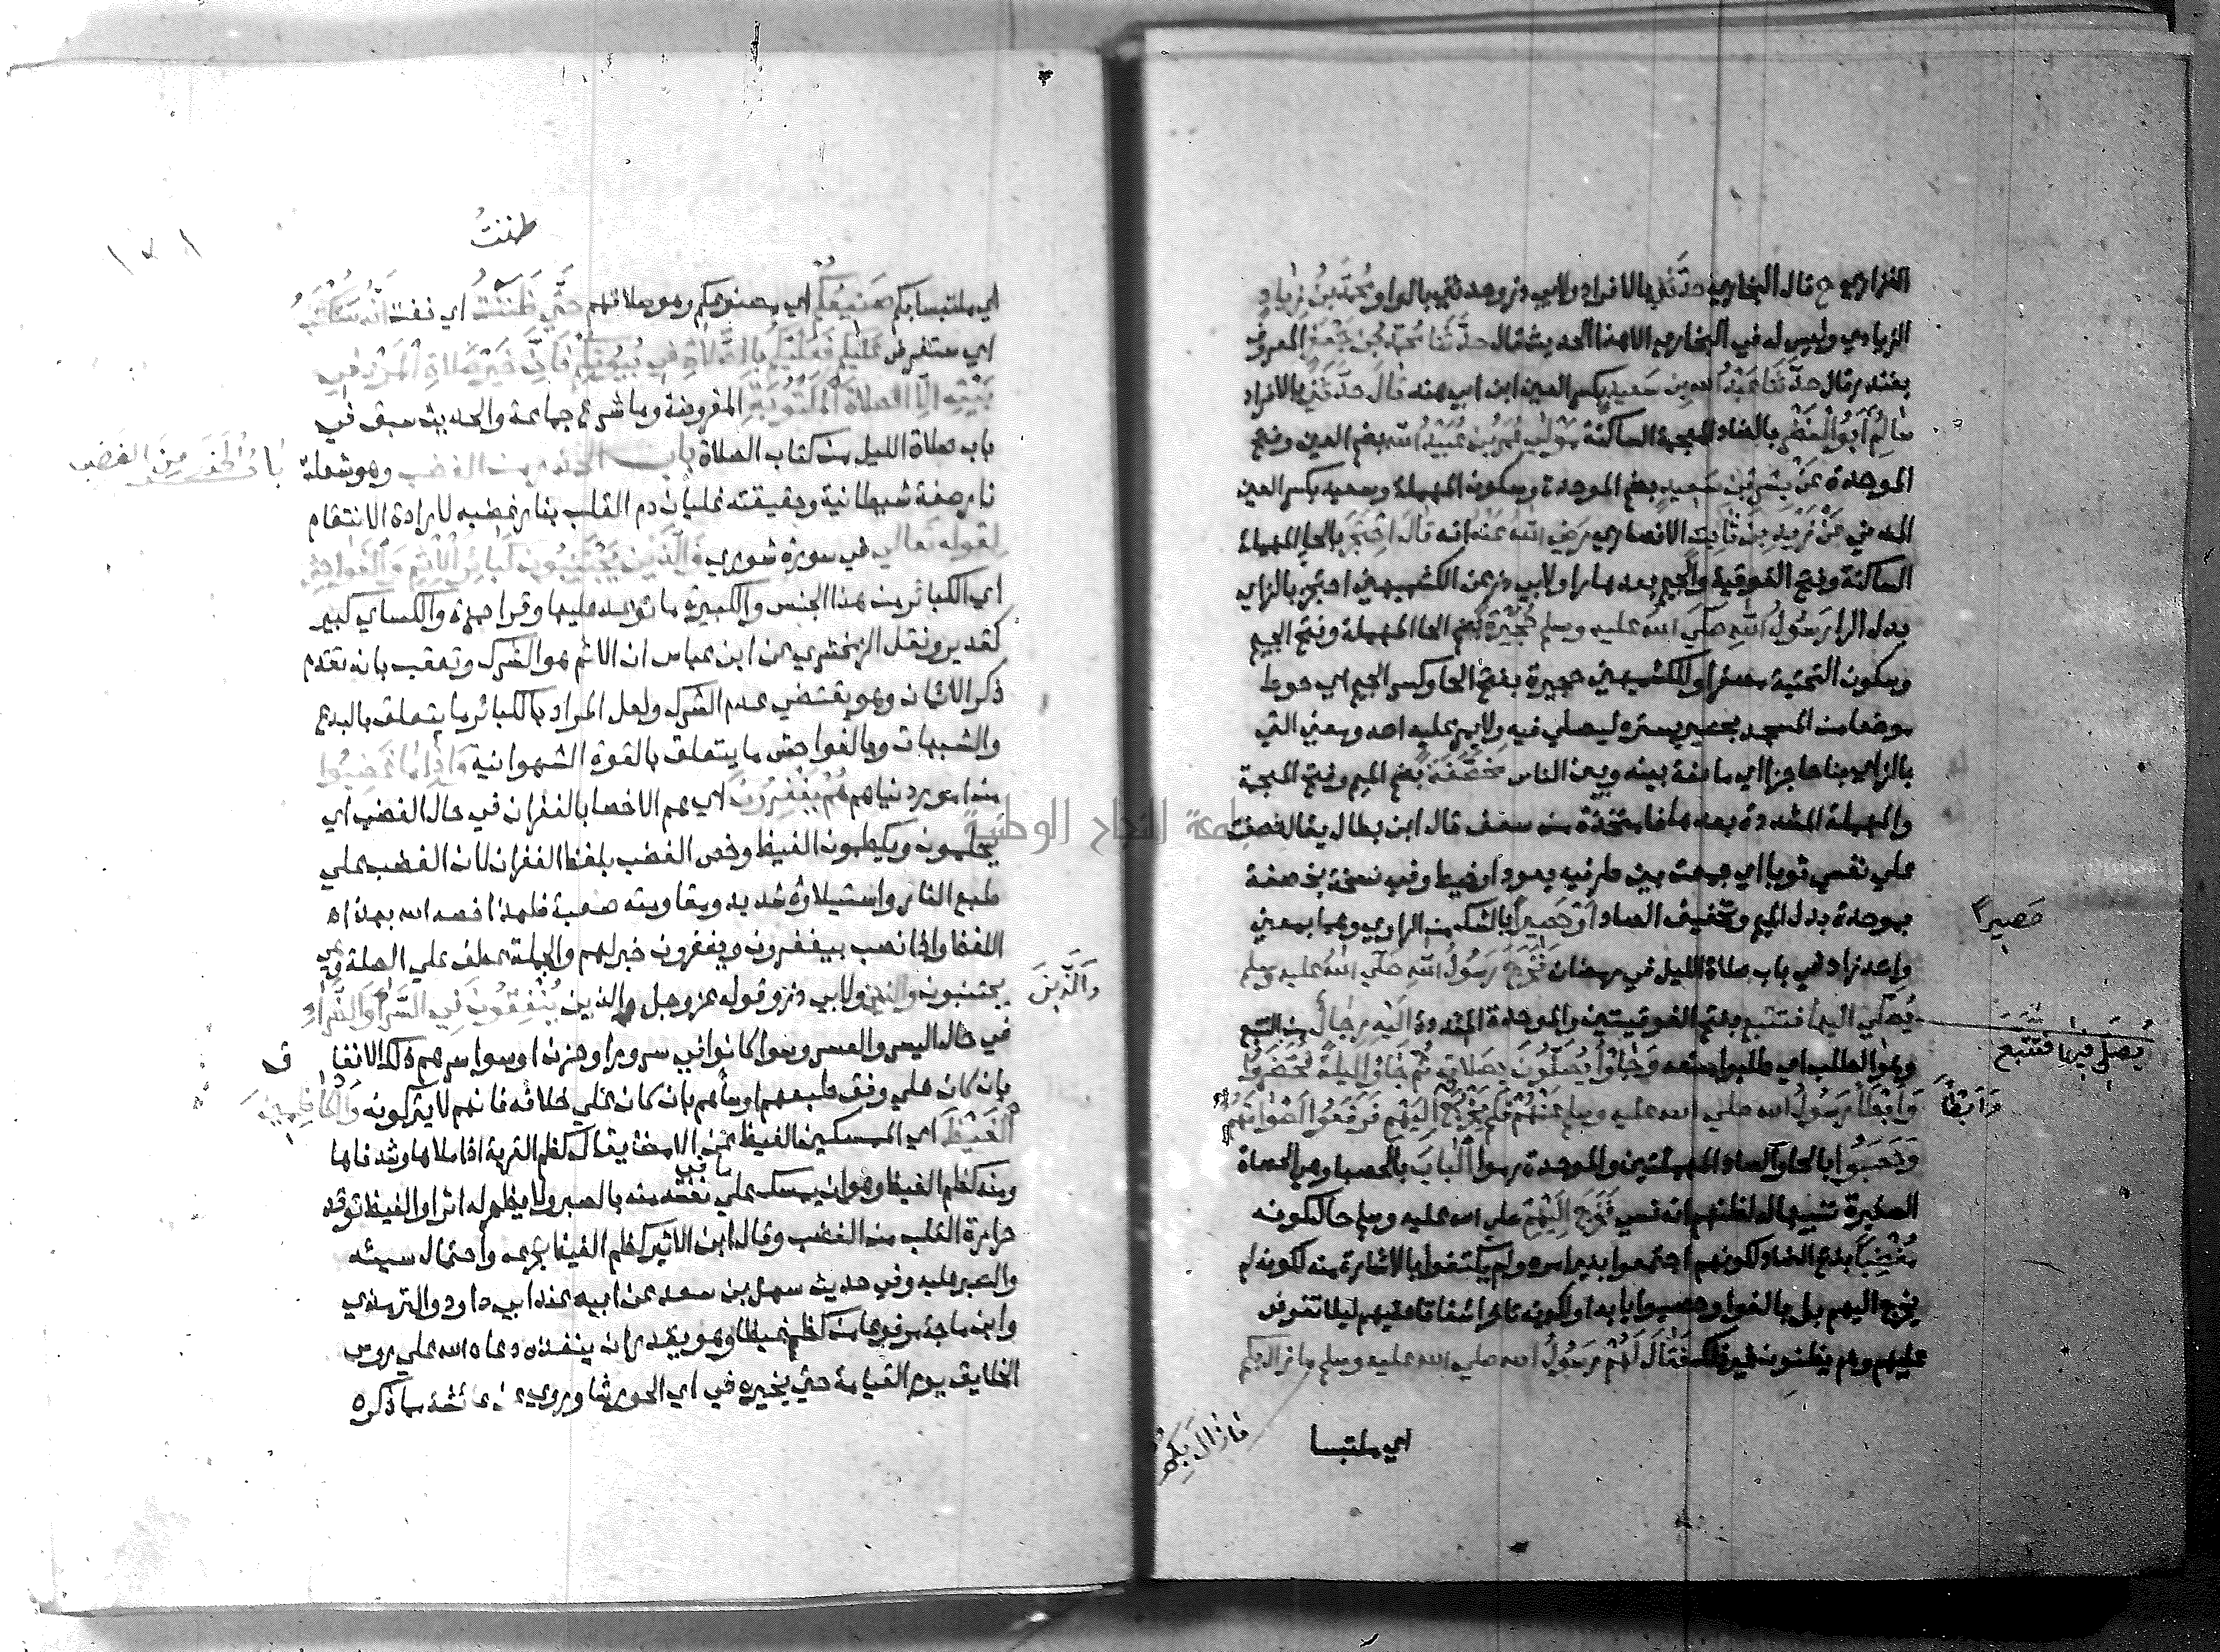 الفزاري ح قال البخاري حدثني بالافراد ولابي ذر وحدثني بالواو محمد بن زياد
الزيادي وليس له في البخاري الا هذا الحديث قال حدثنا محمد بن جعفر المعروف
بغندر قال حدثنا عبد الله بن سعيد بكسر العين ابن ابي هند قال حدثني بالافراد
سالم ابو النضر بالضاد المعجمة الساكنة مولى عمر بن عبيد الله بضم العين وفتح
الموحدة عن بسر بن سعيد بضم الموحدة وسكون المهملة وسعيد بكسر العين
المدني عن زيد بن ثابت الانصاري رضي الله عنه انه قال احتجر بالحا المهملة
الساكنة وفتح الفوقية والجيم بعدها را ولابي ذر عن الكشميهني احتجز بالزاي
بدل الرا رسول الله صلي الله عليه وسلم حجيرة بضم الحا المهملة وفتح الجيم
وسكون التحتية مصغرا وللكشميهني حجيرة بفتح الحا وكسر الجيم اي حوط
موضعا من المسجد بحصير يستره ليصلي فيه ولا يمر عليه احد ومعني التي
بالزاي بنا حاجزا اي مانعة بينه وبين الناس مخصفة بضم الميم وفتح المعجمة
والمهملة المشددة بعدها فا متخذة من سعف قال ابن بطال يقال خصفت
علي نفسي ثوبا اي جمعت بين طرفيه بعود او خيط وفي نسخة بخصفة
بموحدة بدل الميم وتخفيف الصاد او حصيرا بالشك من الراوي وهما بمعني
حصيرا
واحد زاد في باب صلاة الليل في رمضان فخرج رسول الله صلي الله عليه وسلم
يصلي اليها فتتبع بفتح الفوقيتين والموحدة المشددة اليه رجال من التتبع
يصلي فيها فتتبع
وهو الطلب اي طلبوا موضعه وجاوا يصلون بصلاته ثم جاوا ليلة فحضروا
وابطأ رسول الله صلي الله عليه وسلم عنهم فلم يخرج اليهم فرفعوا اصواتهم
وابطأ
وحصبوا بالحا والصاد المهملتين والموحدة رموا الباب بالحصبا وهي الحصاة
الصغيرة تنبيها له لظنهم انه نسي فخرج اليهم صلي الله عليه وسلم حال كونه
مغضبا بفتح الضاد لكونهم اجتمعوا بغير امره ولم يكتفوا بالاشارة منه لكونه لم
يخرج اليهم بل بالغوا وحصبوا بابه او لكونه تاخر اشفاقا عليهم ليلا تفرض
عليهم وهم يظنون غير ذلك فقال لهم رسول الله صلي الله عليه وسلم ما زال بكم
ما زال بكم
اي ملتبسا
ظننت
١٧١
اي ملتبسا بكم صنيعكم اي مصنوعكم وهو صلاتهم حتي ظننت اي خفت انه سيكتب
اي سيفرض عليكم فعليكم بالصلاة في بيوتكم فان خير صلاة المرء في
بيته الا الصلاة المكتوبة المفروضة وما شرع جماعة والحديث سبق في
باب صلاة الليل من كتاب الصلاة باب الحذر من الغضب وهو شعلة
باب الحذر من الغضب
نار صفة شيطانية وحقيقته غليان دم القلب بنار غضبه لارادة الانتقام
لقوله تعالي في سورة شوري والذين يجتنبون كبائر الاثم والفواحش
اي الكبائر من هذا الجنس والكبيرة ما توعد عليها وقرا حمزة والكساي كبير
كقدير ونقل الزمخشري عن ابن عباس ان الاثم هو الشرك وتعقب بانه تقدم
ذكر الايمان وهو يقتضي عدم الشرك ولعل المراد بالكبائر ما يتعلق بالبدع
والشبهات وبالفواحش ما يتعلق بالقوة الشهوانية واذا ما غضبوا
من امور دنياهم هم يغفرون اي هم الاخصا بالغفران في حال الغضب اي
يحلمون ويكظمون الغيظ وخص الغضب بلفظ الغفران لان الغضب علي
طبع النار واستيلاوه شديد ومقاومته صعبة فلهذا خصه الله بهذا
اللفظ واذا نصب بيغفرون ويغفرون خبر لهم والجملة عطف علي الصلة وهي
يجتنبون والذين ولابي ذر وقوله عز وجل والذين ينفقون في السراء والضراء
والذين
في حال اليسر والعسر وسوا كانوا في سرور او حزن او سوا سرهم ذلك الانفاق
بان كان علي وفق طبعهم او ساهم بان كان علي خلافه فانهم لا يتركونه والكاظمين
الغيظ اي الممسكين الغيظ عن الامضا يقال كظم القربة اذا ملاها وشد فاها
ومنه كظم الغيظ وهو ان يمسك علي ما في نفسه منه بالصبر ولا يظهر له اثرا والغيظ توقد
حرارة القلب من الغضب وقال ابن الاثير كظم الغيظ تجرعه واحتمال سيئه
والصبر عليه وفي حديث سهل بن سعد عن ابيه عند ابي داود والترمذي
وابن ماجة مرفوعا من كظم غيظا وهو يقدر ان ينفذه دعاه الله علي روس
الخلايق يوم القيامة حتي يخيره في اي الحور شا وروي عن عائشة مما ذكره